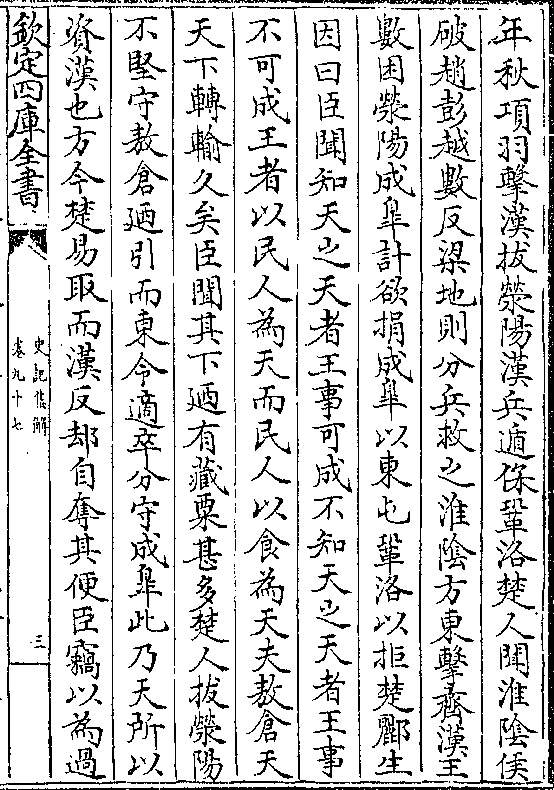 年秋項羽擊漢拔滎陽漢兵遁保鞏洛楚人聞淮陰侯
破趙彭越數反梁地則分兵救之淮陰方東擊齊漢王
數困滎陽成臯計欲捐成臯以東屯鞏洛以拒楚酈生
因曰臣聞知天之天者王事可成不知天之天者王事
不可成王者以民人為天而民人以食為天夫敖倉天
天下轉輸久矣臣聞其下廼有藏粟甚多楚人拔滎陽
不堅守敖倉廼引而東令適卒分守成臯此乃天所以
資漢也方今楚易取而漢反郤自奪其便臣竊以為過
欽定四庫全書
史記集解
卷九十七
三